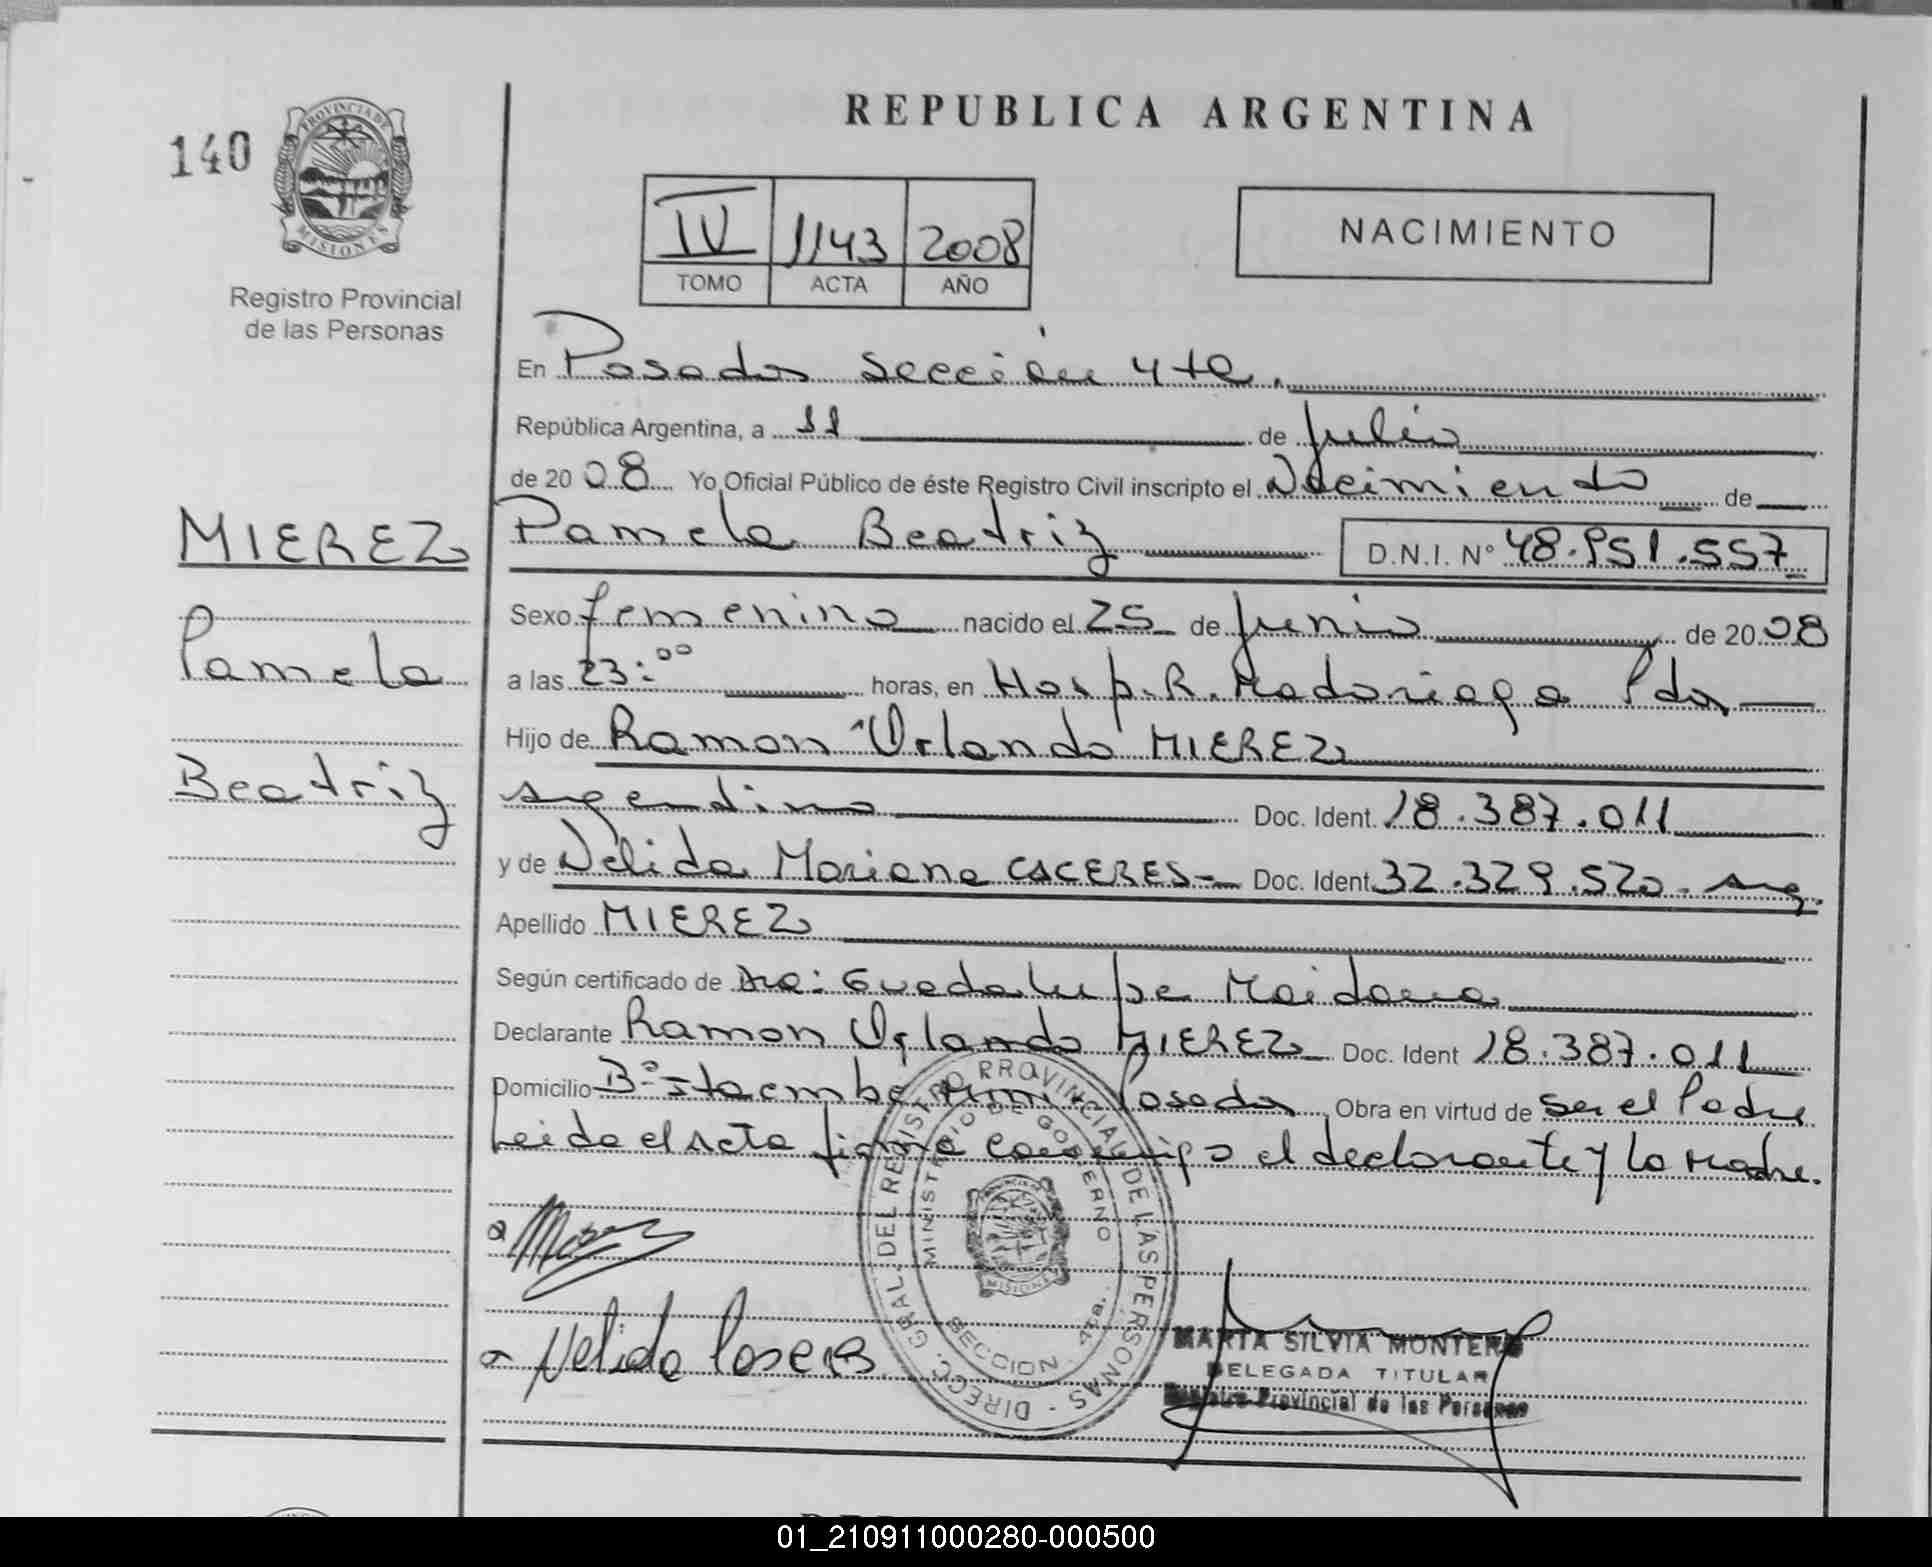 REPUBLICA ARGENTINA
140
PROVINCIA DE
MISIONES
Registro Provincial
de las Personas
IV 1143 2008
TOMO ACTA AÑO
NACIMIENTO
En Posadas Sección 4ta.
República Argentina, a 11 de Julio
de 20 08 Yo Oficial Público de éste Registro Civil inscripto el Nacimiento de
MIEREZ
Pamela
Beatriz
Pamela Beatriz D.N.I. N° 48.951.557
Sexo femenino nacido el 25 de Junio de 20 08
a las 23:00 horas, en Hosp. R. Madariaga Pdas
Hijo de Ramon Orlando MIEREZ
argentino Doc. Ident. 18.387.011
y de Nélida Mariana CACERES Doc. Ident. 32.329.520 - arg.
Apellido MIEREZ
Según certificado de Dra: Guadalupe Maidana
Declarante Ramon Orlando MIEREZ Doc. Ident 18.387.011
Domicilio B° Itaembé Miní Posadas Obra en virtud de ser el Padre
Leida el Acta firma conmigo el declarante y la Madre.
DIRECC. GRAL. DEL REGISTRO PROVINCIAL DE LAS PERSONAS
MINISTERIO DE GOBIERNO
SECCION 4ta.
MISIONES
Nelida Caseres
MARTA SILVIA MONTERO
DELEGADA TITULAR
Registro Provincial de las Personas
01_210911000280-000500